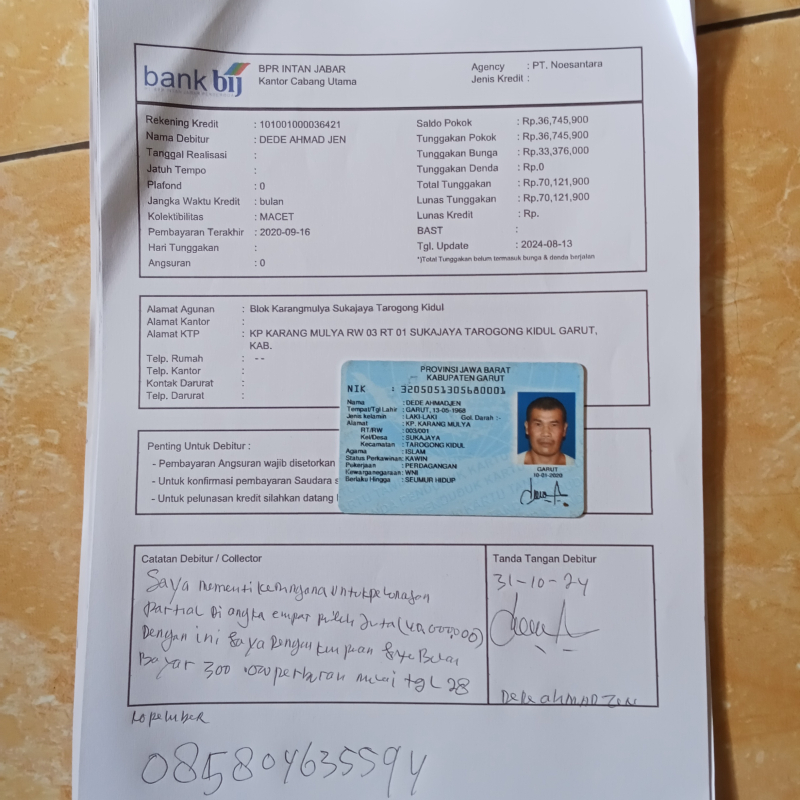 bank bij
BPR INTAN JABAR
Kantor Cabang Utama
Agency : PT. Noesantara
Jenis Kredit :
Rekening Kredit : 101001000036421
Nama Debitur : DEDE AHMAD JEN
Tanggal Realisasi :
Jatuh Tempo :
Plafond : 0
Jangka Waktu Kredit : bulan
Kolektibilitas : MACET
Pembayaran Terakhir : 2020-09-16
Hari Tunggakan :
Angsuran : 0
Saldo Pokok : Rp.36,745,900
Tunggakan Pokok : Rp.36,745,900
Tunggakan Bunga : Rp.33,376,000
Tunggakan Denda : Rp.0
Total Tunggakan : Rp.70,121,900
Lunas Tunggakan : Rp.70,121,900
Lunas Kredit : Rp.
BAST :
Tgl. Update : 2024-08-13
*)Total Tunggakan belum termasuk bunga & denda berjalan
Alamat Agunan : Blok Karangmulya Sukajaya Tarogong Kidul
Alamat Kantor :
Alamat KTP : KP KARANG MULYA RW 03 RT 01 SUKAJAYA TAROGONG KIDUL GARUT,
KAB.
Telp. Rumah : --
Telp. Kantor :
Kontak Darurat :
Telp. Darurat :
PROVINSI JAWA BARAT
KABUPATEN GARUT
NIK : 3205051305680001
Nama : DEDE AHMADJEN
Tempat/Tgl Lahir : GARUT, 13-05-1968
Jenis kelamin : LAKI-LAKI Gol. Darah :-
Alamat : KP. KARANG MULYA
RT/RW : 003/001
Kel/Desa : SUKAJAYA
Kecamatan : TAROGONG KIDUL
Agama : ISLAM
Status Perkawinan: KAWIN
Pekerjaan : PERDAGANGAN
Kewarganegaraan: WNI
Berlaku Hingga : SEUMUR HIDUP
GARUT
Penting Untuk Debitur :
- Pembayaran Angsuran wajib disetorkan
- Untuk konfirmasi pembayaran Saudara s
- Untuk pelunasan kredit silahkan datang
Catatan Debitur / Collector
Saya
Partial Di angka empat puluh Juta (40,000,000)
Dengan ini Saya Dengan
Bayar 300.000 perbulan mulai tgl 28
Nopember
Tanda Tangan Debitur
31-10-24
DEDE AHMAD ZEN
085804635594